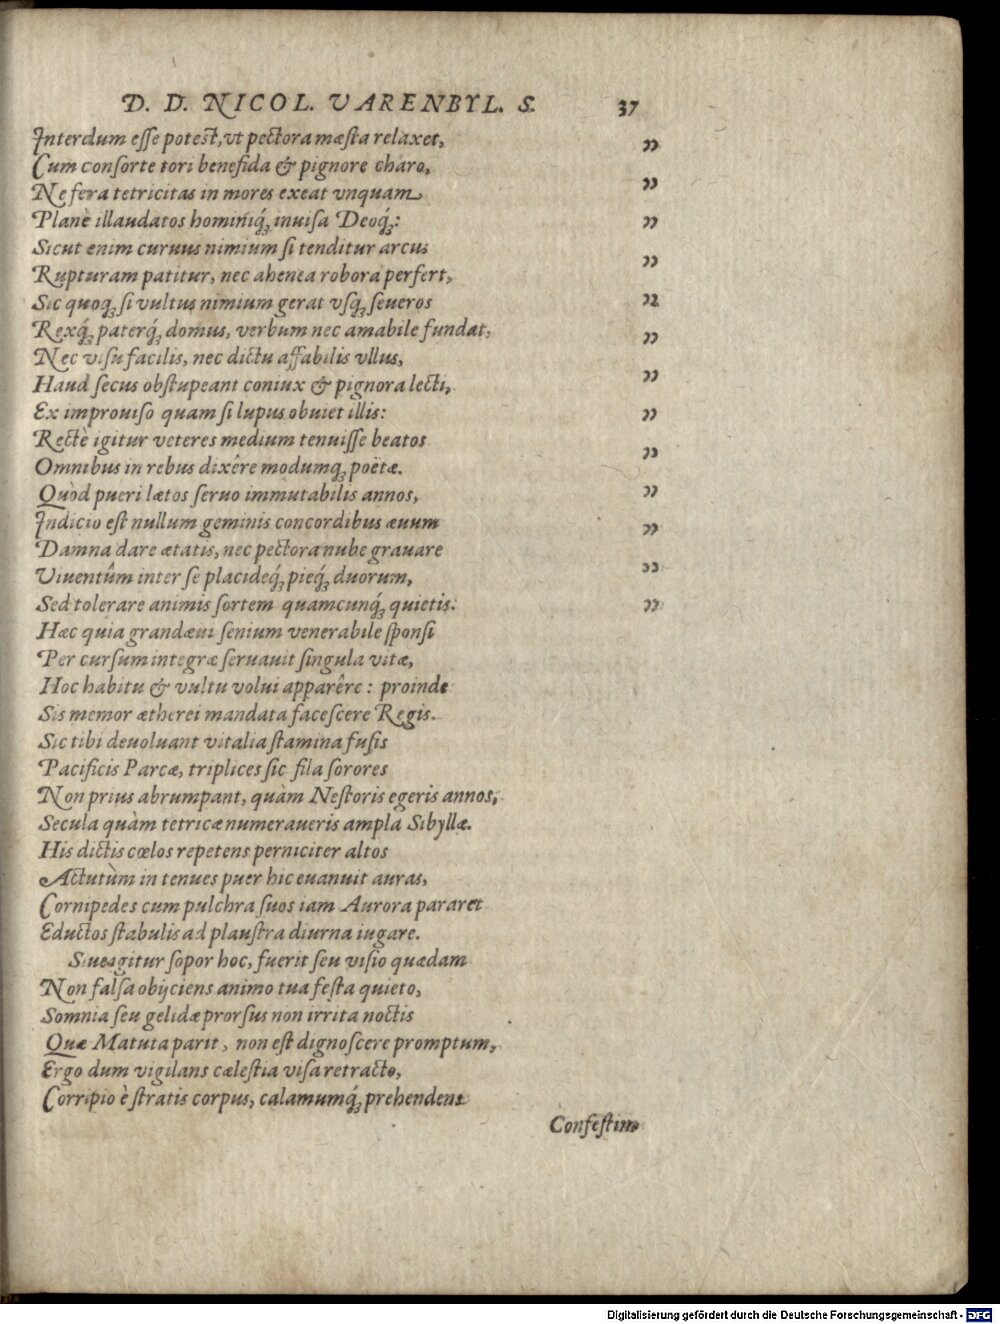 D. D. NICOL. VARENBYL. S. 37
Interdum esse potest, vt pectora mæsta relaxet, „
Cum consorte tori benefida & pignore charo, „
Ne fera tetricitas in mores exeat vnquam „
Planè illaudatos hominiq́ꝫ inuisa Deoq́ꝫ: „
Sicut enim curuus nimium si tenditur arcus „
Rupturam patitur, nec ahenea robora perfert, „
Sic quoqꝫ si vultus nimium gerat vsqꝫ seueros „
Rexq́ꝫ paterq́ꝫ domus, verbum nec amabile fundat, „
Nec visu facilis, nec dictu affabilis vllus, „
Haud secus obstupeant coniux & pignora lecti, „
Ex improuiso quam si lupus obuiet illis: „
Rectè igitur veteres medium tenuisse beatos „
Omnibus in rebus dixêre modumqꝫ poëtæ. „
Quòd pueri lætos seruo immutabilis annos,
Indicio est nullum geminis concordibus æuum
Damna dare ætatis, nec pectora nube grauare
Viuentûm inter se placideq́ꝫ pieq́ꝫ duorum,
Sed tolerare animis sortem quamcunq́ꝫ quietis:
Hæc quia grandæui senium venerabile sponsi
Per cursum integræ seruauit singula vitæ,
Hoc habitu & vultu volui apparêre: proinde
Sis memor ætherei mandata facescere Regis.
Sic tibi deuoluant vitalia stamina fusis
Pacificis Parcæ, triplices sic fila sorores
Non prius abrumpant, quàm Nestoris egeris annos,
Secula quàm tetricæ numeraueris ampla Sibyllæ.
His dictis cœlos repetens perniciter altos
Actutùm in tenues puer hic euanuit auras,
Cornipedes cum pulchra suos iam Aurora pararet
Eductos stabulis ad plaustra diurna iugare.
Siue igitur sopor hoc, fuerit seu visio quædam
Non falsa obijciens animo tua festa quieto,
Somnia seu gelidæ prorsus non irrita noctis
Quæ Matuta parit, non est dignoscere promptum,
Ergo dum vigilans cælestia visa retracto,
Corripio è stratis corpus, calamumq́ꝫ prehendens
Confestim
Digitalisierung gefördert durch die Deutsche Forschungsgemeinschaft - DFG